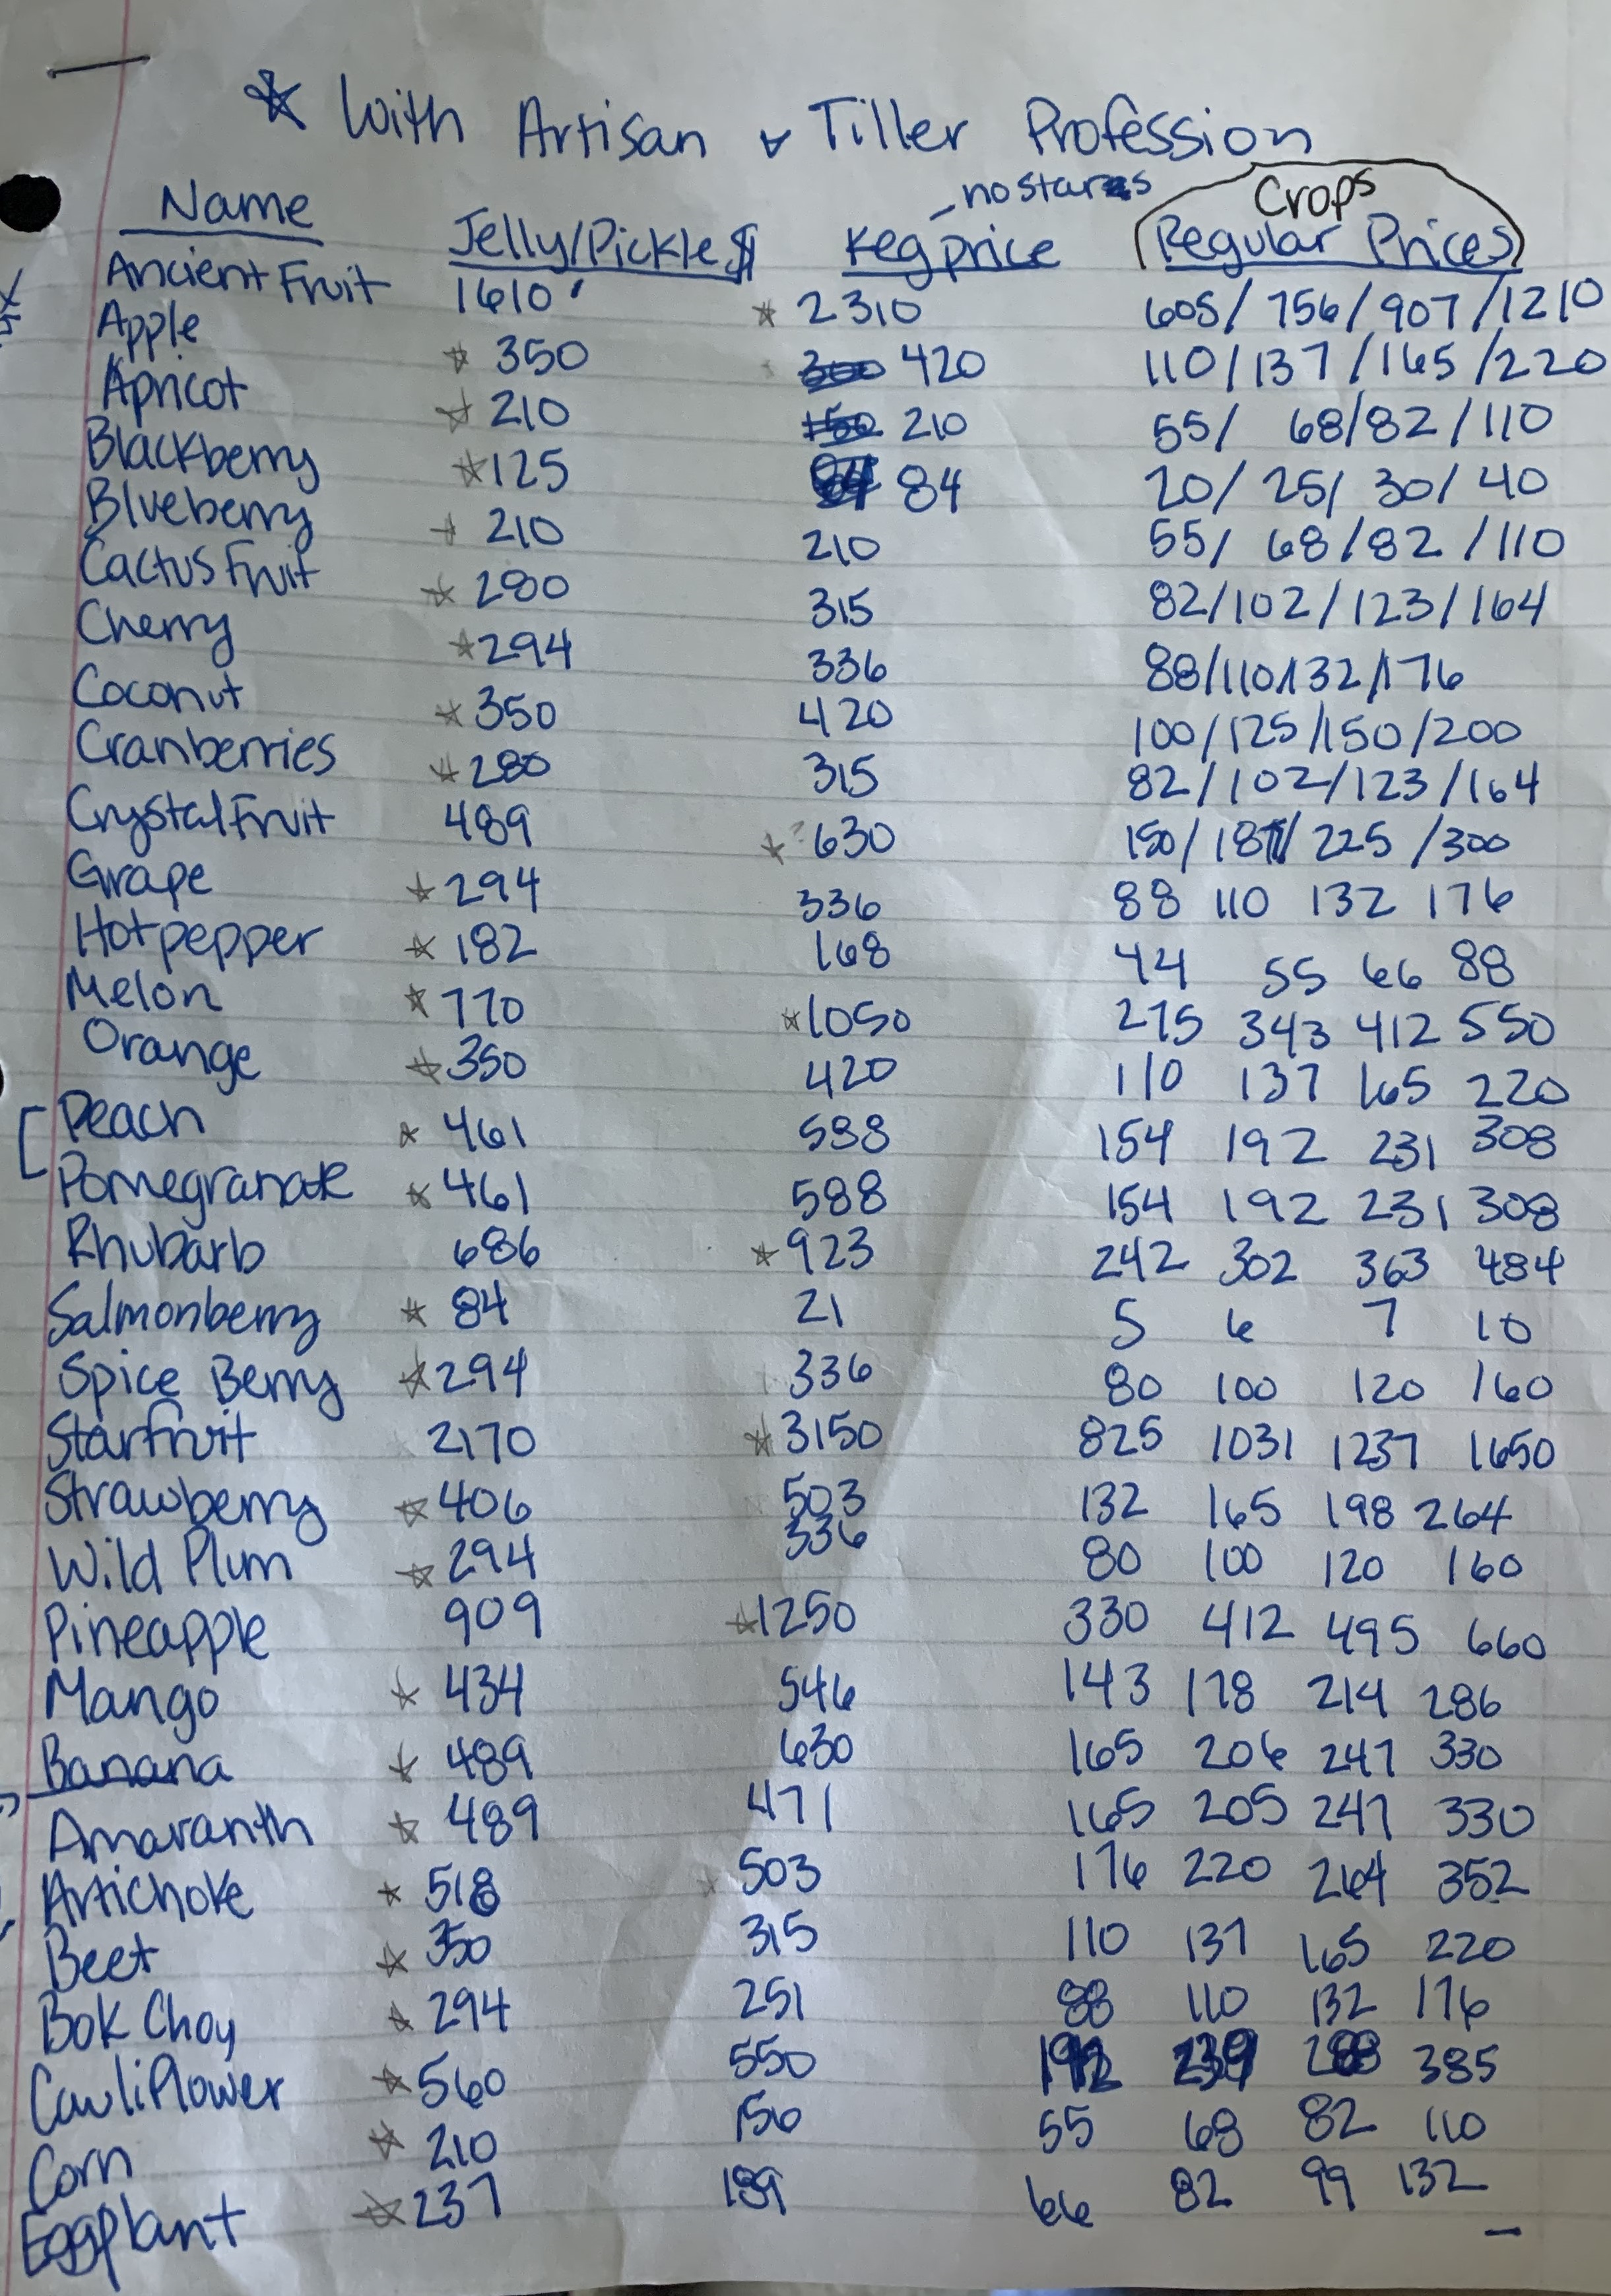 ☆ With Artisan & Tiller Profession
Name Jelly/Pickle $ Keg price - no stars Crops Regular Prices
Ancient Fruit 1610 ☆ 2310 605/ 756/ 907 /1210
Apple ☆ 350 420 110/137/165/220
Apricot ☆ 210 210 55/ 68/82/110
Blackberry ☆125 84 20/ 25/ 30/ 40
Blueberry ☆ 210 210 55/ 68/82/110
Cactus Fruit ☆ 280 315 82/102/123/164
Cherry ☆294 336 88/110/132/176
Coconut ☆350 420 100/125/150/200
Cranberries ☆280 315 82/102/123/164
Crystal Fruit 489 ☆?630 150/187/225/300
Grape ☆294 336 88 110 132 176
Hot pepper ☆ 182 168 44 55 66 88
Melon ☆ 770 ☆1050 275 343 412 550
Orange ☆350 420 110 137 165 220
Peach ☆ 461 588 154 192 231 308
Pomegranate ☆ 461 588 154 192 231 308
Rhubarb 686 ☆923 242 302 363 484
Salmonberry ☆ 84 21 5 6 7 10
Spice Berry ☆294 336 80 100 120 160
Starfruit 2170 ☆3150 825 1031 1237 1650
Strawberry ☆406 503 132 165 198 264
Wild Plum ☆294 336 80 100 120 160
Pineapple 909 ☆1250 330 412 495 660
Mango ☆ 434 546 143 178 214 286
Banana ☆ 489 630 165 206 247 330
Amaranth ☆ 489 471 165 205 247 330
Artichoke ☆ 518 503 176 220 264 352
Beet ☆ 350 315 110 137 165 220
Bok Choy ☆ 294 251 88 110 132 176
Cauliflower ☆560 550 192 239 288 385
Corn ☆ 210 156 55 68 82 110
Eggplant ☆237 189 66 82 99 132